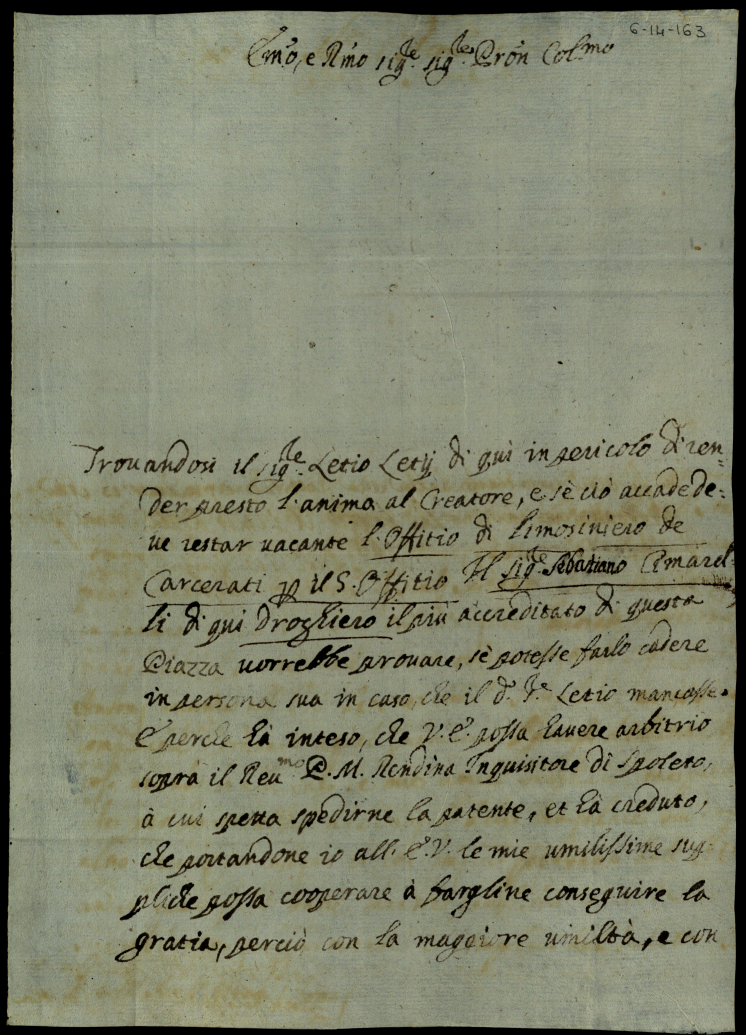 6-14-163
Em̃o, e Rm̃o sig.re sig.re Prõn Col.mo
Trouandosi il sig.re Letio Letij di qui in pericolo di ren=
der presto l'anima al Creatore, e sè ciò accade de=
ue restar uacante l'Offitio di limosiniero de
Carcerati p il S. Offitio Il sig.re Sebastiano Cimarel=
li di qui droghiero il più accreditato di questa
Piazza uorrebbe prouare, sè potesse farlo cadere
in persona sua in caso, che il d.o S.re Letio mancasse.
E perche hà inteso, che V.E. possa hauere arbitrio
sopra il Reu.mo P. M. Rendina Inquisitore di Spoleto,
à cui spetta spedirne la patente, et hà creduto,
che portandone io all' E.V. le mie umilissime sup=
pliche possa cooperare à fargline conseguire la
gratia, perciò con la maggiore umiltà, e con